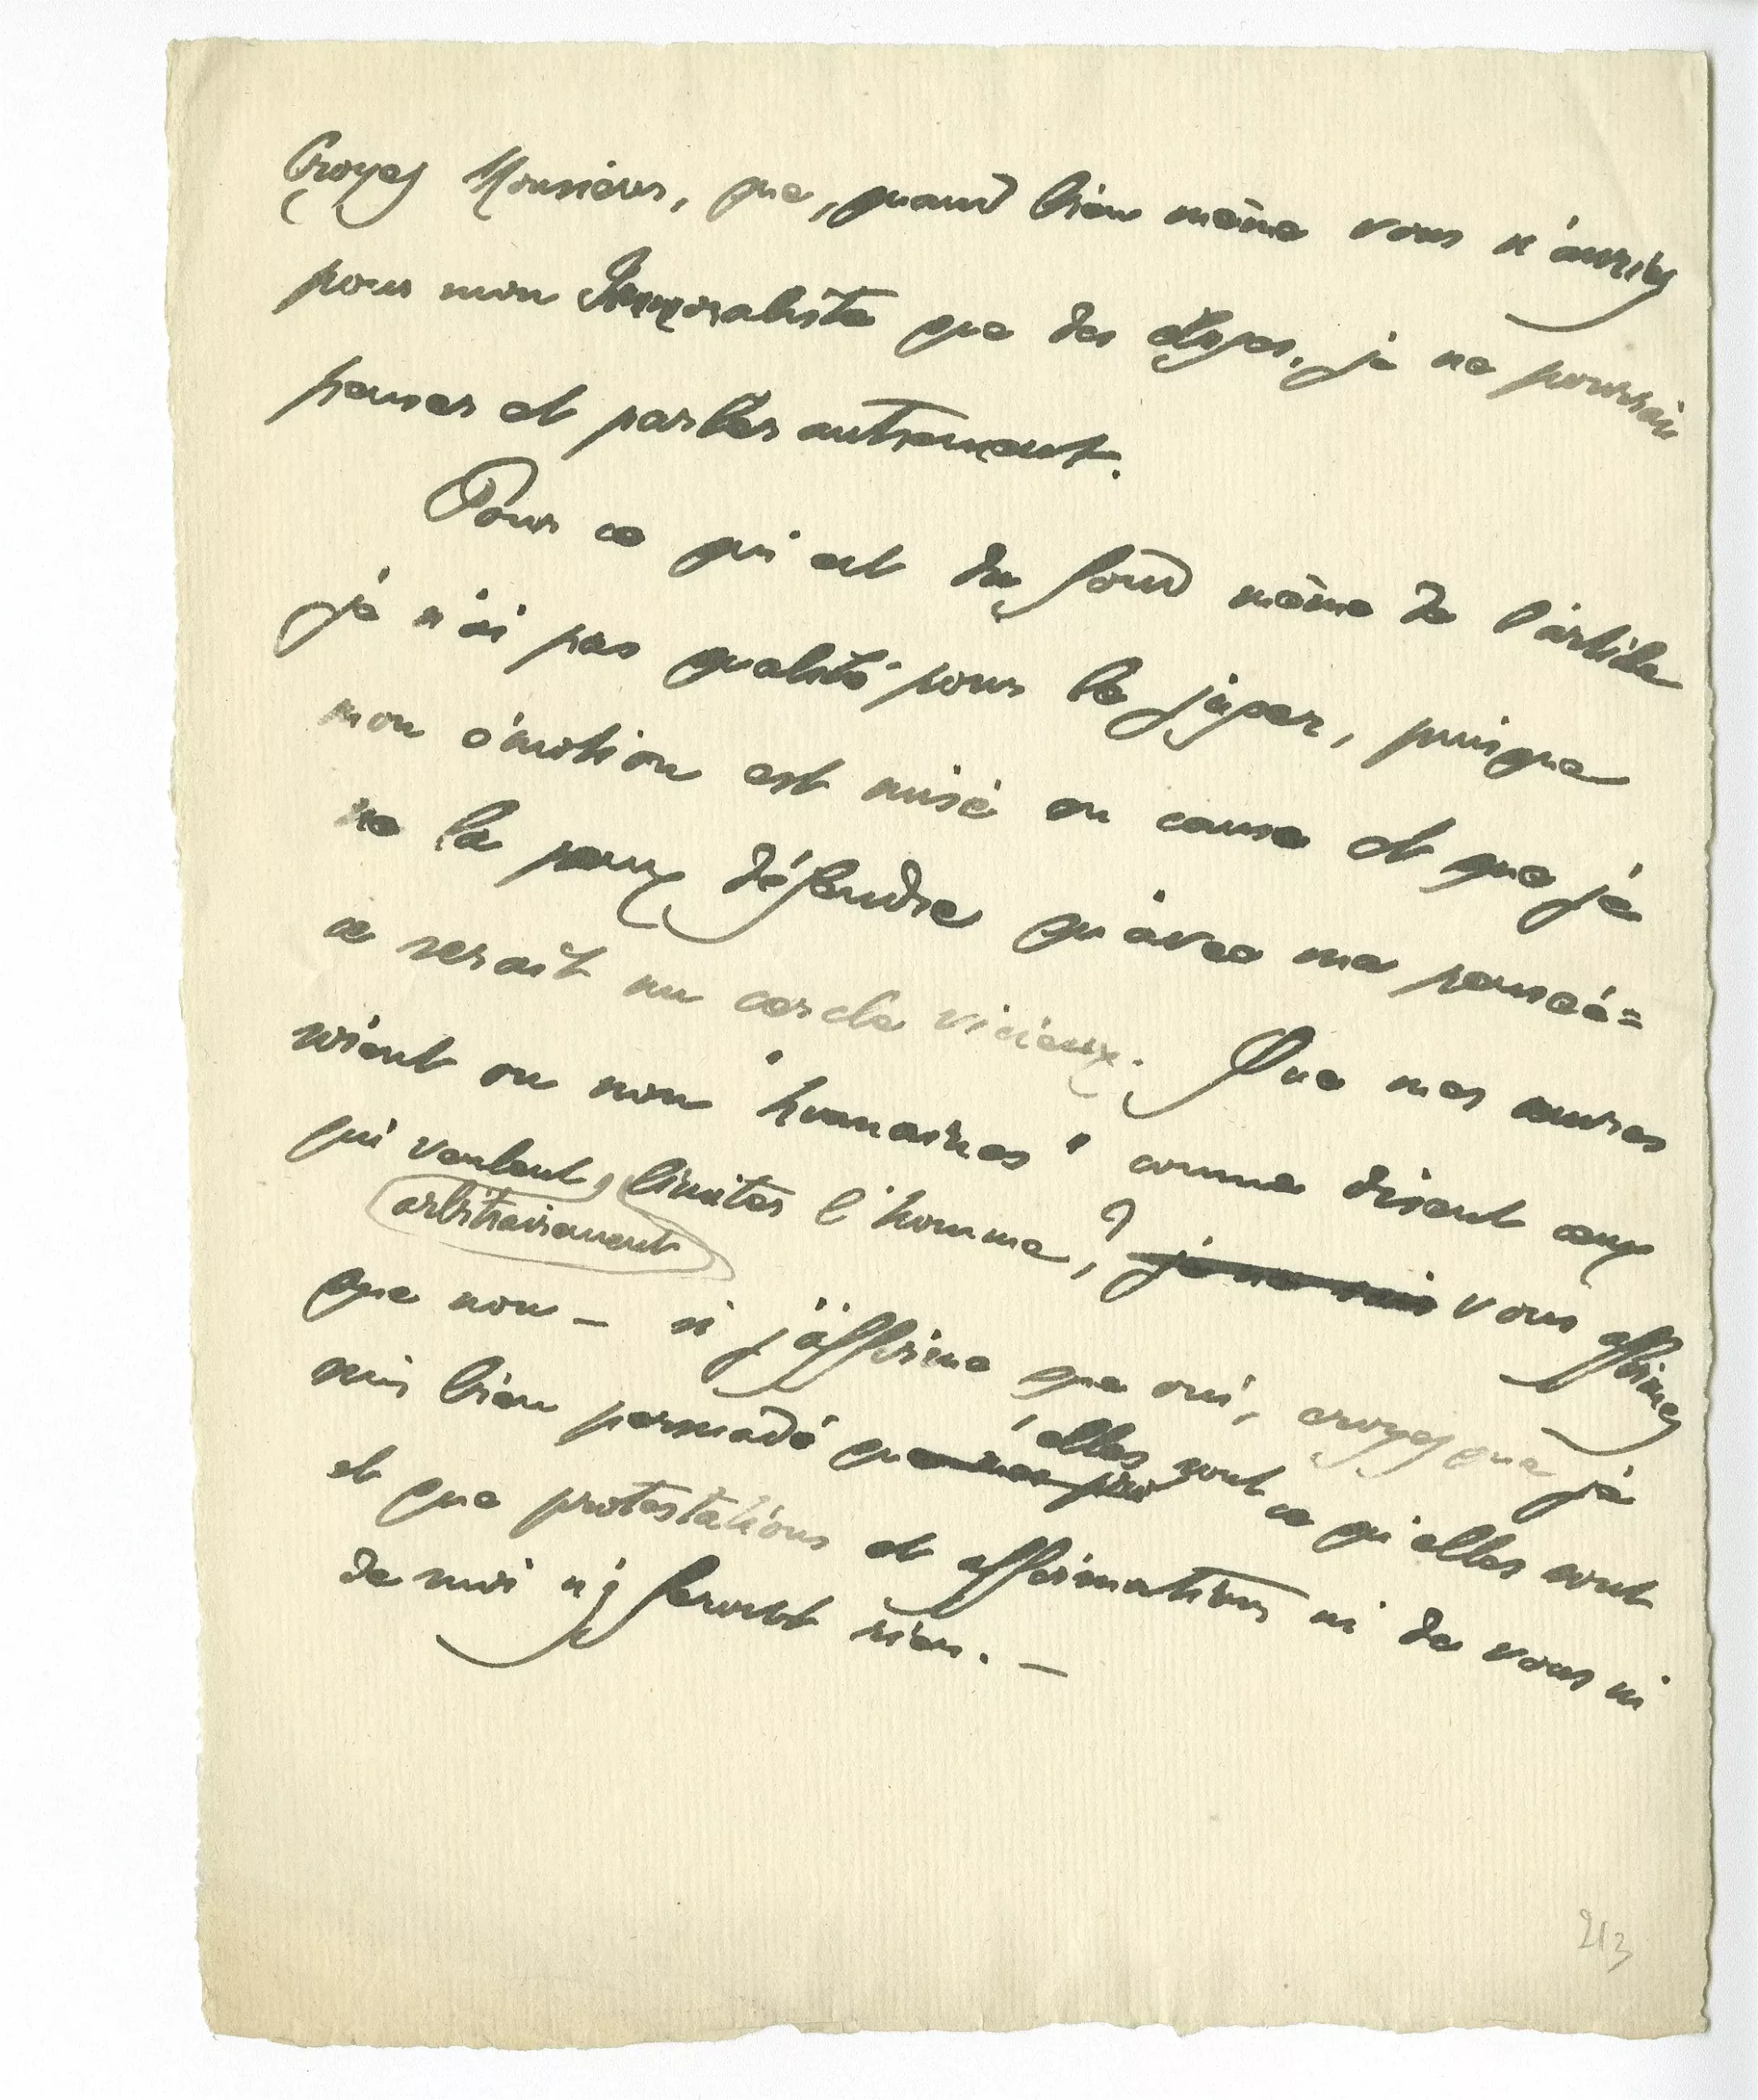 Croyez Monsieur, que, quand bien même vous n'auriez
pour mon Immoraliste que des éloges, je ne pourrais
penser et parler autrement.
Pour ce qui est du fond même de l'article
je n'ai pas qualité pour le juger, puisque
mon émotion est mise en cause et que je
ne la peux défendre qu'avec ma pensée =
ce serait un cercle vicieux. Que mes œuvres
soient ou non "humaines" comme disent ceux
qui veulent, limiter l'homme, ? je ne sais vous affirmez
arbitrairement
que non — si j'affirme que oui, croyez que je
suis bien persuadé que mes elles sont ce qu'elles sont
et que protestations et affirmations ni de vous ni
de moi n'y feront rien. —
213